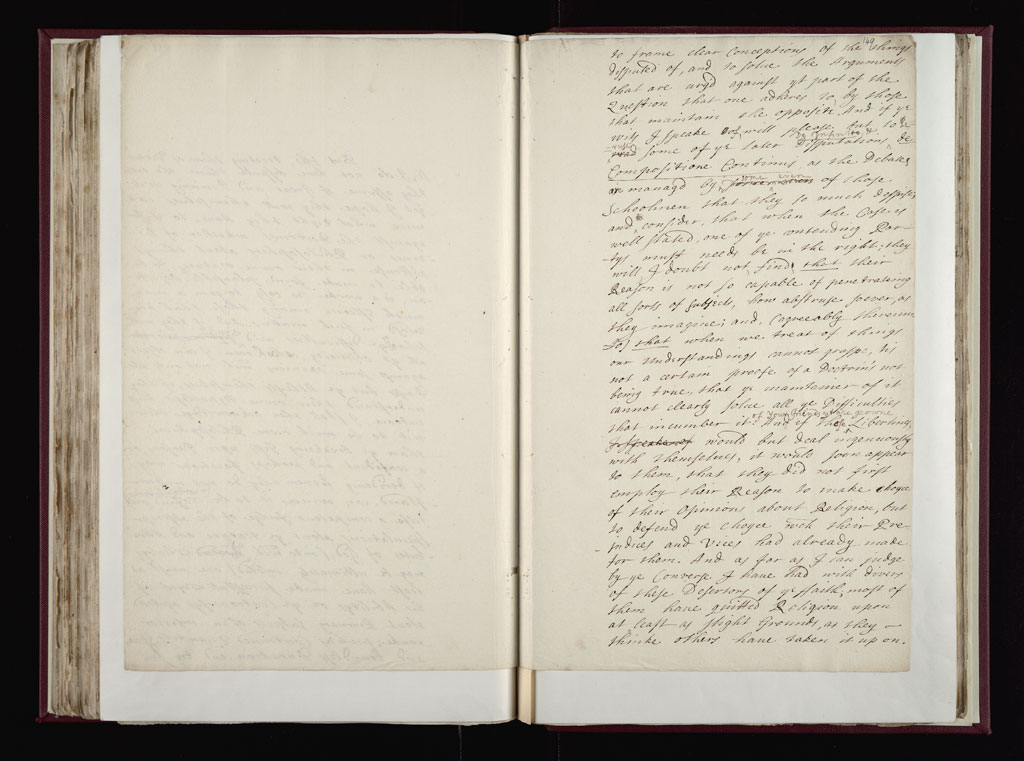 149
to frame clear Conceptions of the things
disputed of, and to solve the Arguments
that are urg'd against yt part of the
Question that one adheres to, by those
that maintain the opposite. And if ye
wits I speake of, will please but to
some of ye later Disputations, de
Compositione Continui, as the Debates
are manag'd by some even of those
Schoolmen that they so much despise,
and consider, that when the Case is
well stated, one of ye contending Par-
tys must needs be in the right; they
will I doubt not, find, that their
Reason is not so capable of penetrating
all sorts of subjects, how abstruse soever, as
they imagine; and, (agreeably thereun-
to) that when we treat of things
our Understandings cannot graspe, tis
not a certain proofe of a Doctrin's not
being true, that ye maintainer of it
cannot clearly solve all ye Difficulties
that incumber it. And if these Libertines
of your friends
would but deal ingenuously
with themselves, it would soon appear
to them, that they did not first
employ their Reason to make choyce
of their Opinions about Religion, but
to defend ye choyce wch their Pre-
judices and Vices had already made
for them. And as far as I can judge
by ye Converse I have had with divers
of these Desertors of ye faith, most of
them have quitted Religion upon
at least as slight Grounds, as they
thinke others have taken it up on.